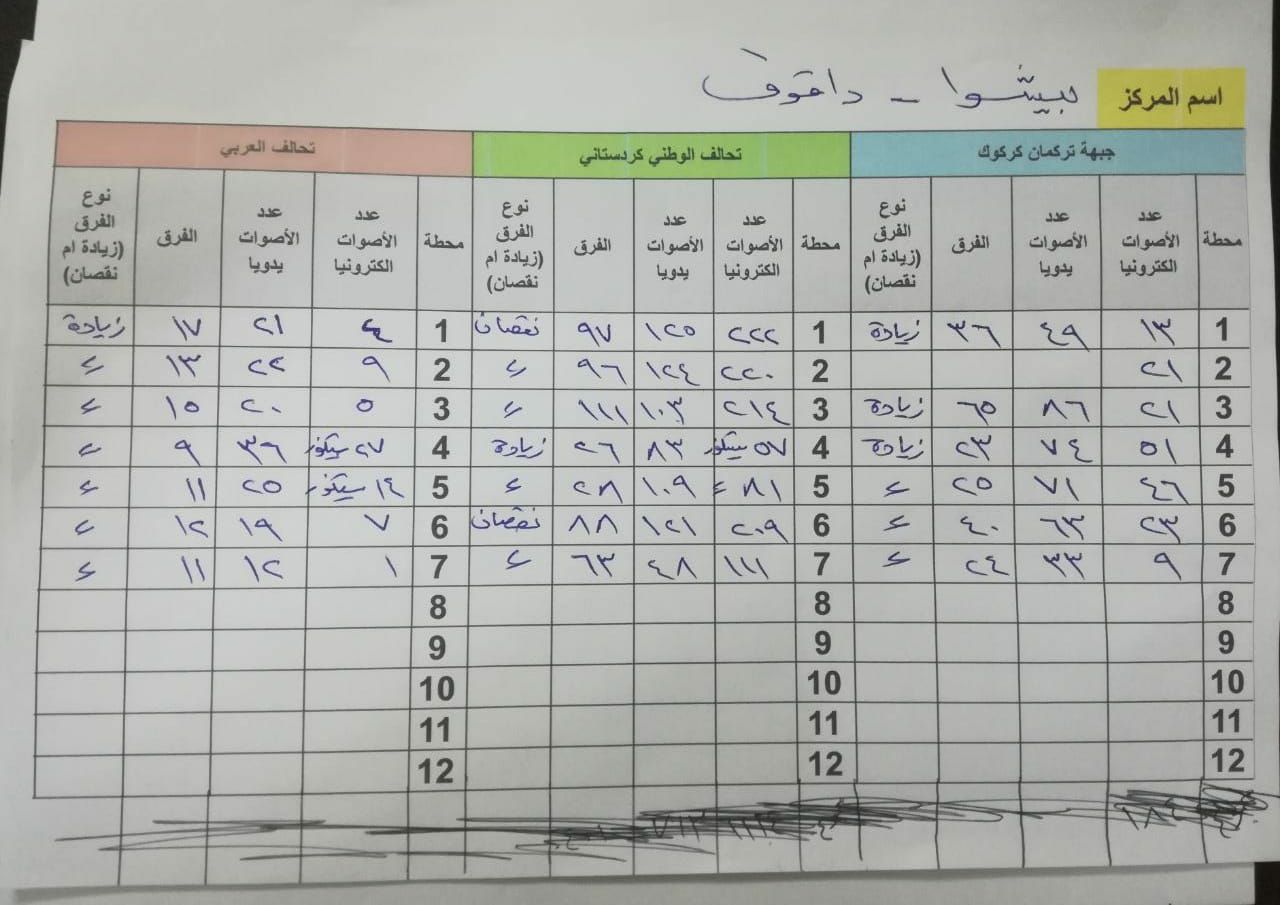 اسم المركز بيشوا - داقوق
جبهة تركمان كركوك تحالف الوطني كردستاني تحالف العربي
محطة عدد الأصوات الكترونيا عدد الأصوات يدويا الفرق نوع الفرق (زيادة ام نقصان) محطة عدد الأصوات الكترونيا عدد الأصوات يدويا الفرق نوع الفرق (زيادة ام نقصان) محطة عدد الأصوات الكترونيا عدد الأصوات يدويا الفرق نوع الفرق (زيادة ام نقصان)
1 ١٣ ٤٩ ٣٦ زيادة 1 ٢٢٢ ١٢٥ ٩٧ نقصان 1 ٤ ٢١ ١٧ زيادة
2 ٢١ 2 ٢٢٠ ١٢٤ ٩٦ ء 2 ٩ ٢٢ ١٣ ء
3 ٢١ ٨٦ ٦٥ زيادة 3 ٢١٤ ١٠٣ ١١١ ء 3 ٥ ٢٠ ١٥ ء
4 ٥١ ٧٤ ٢٣ زيادة 4 ٥٧ سيتكور ٨٣ ٢٦ زيادة 4 ٢٧ سيتكور ٣٦ ٩ ء
5 ٤٦ ٧١ ٢٥ ء 5 ٨١ ء ١٠٩ ٢٨ ء 5 ١٤ سيتكور ٢٥ ١١ ء
6 ٢٣ ٦٣ ٤٠ ء 6 ٢٠٩ ١٢١ ٨٨ نقصان 6 ٧ ١٩ ١٢ ء
7 ٩ ٣٣ ٢٤ ء 7 ١١١ ٤٨ ٦٣ ء 7 ١ ١٢ ١١ ء
8 8 8
9 9 9
10 10 10
11 11 11
12 12 12